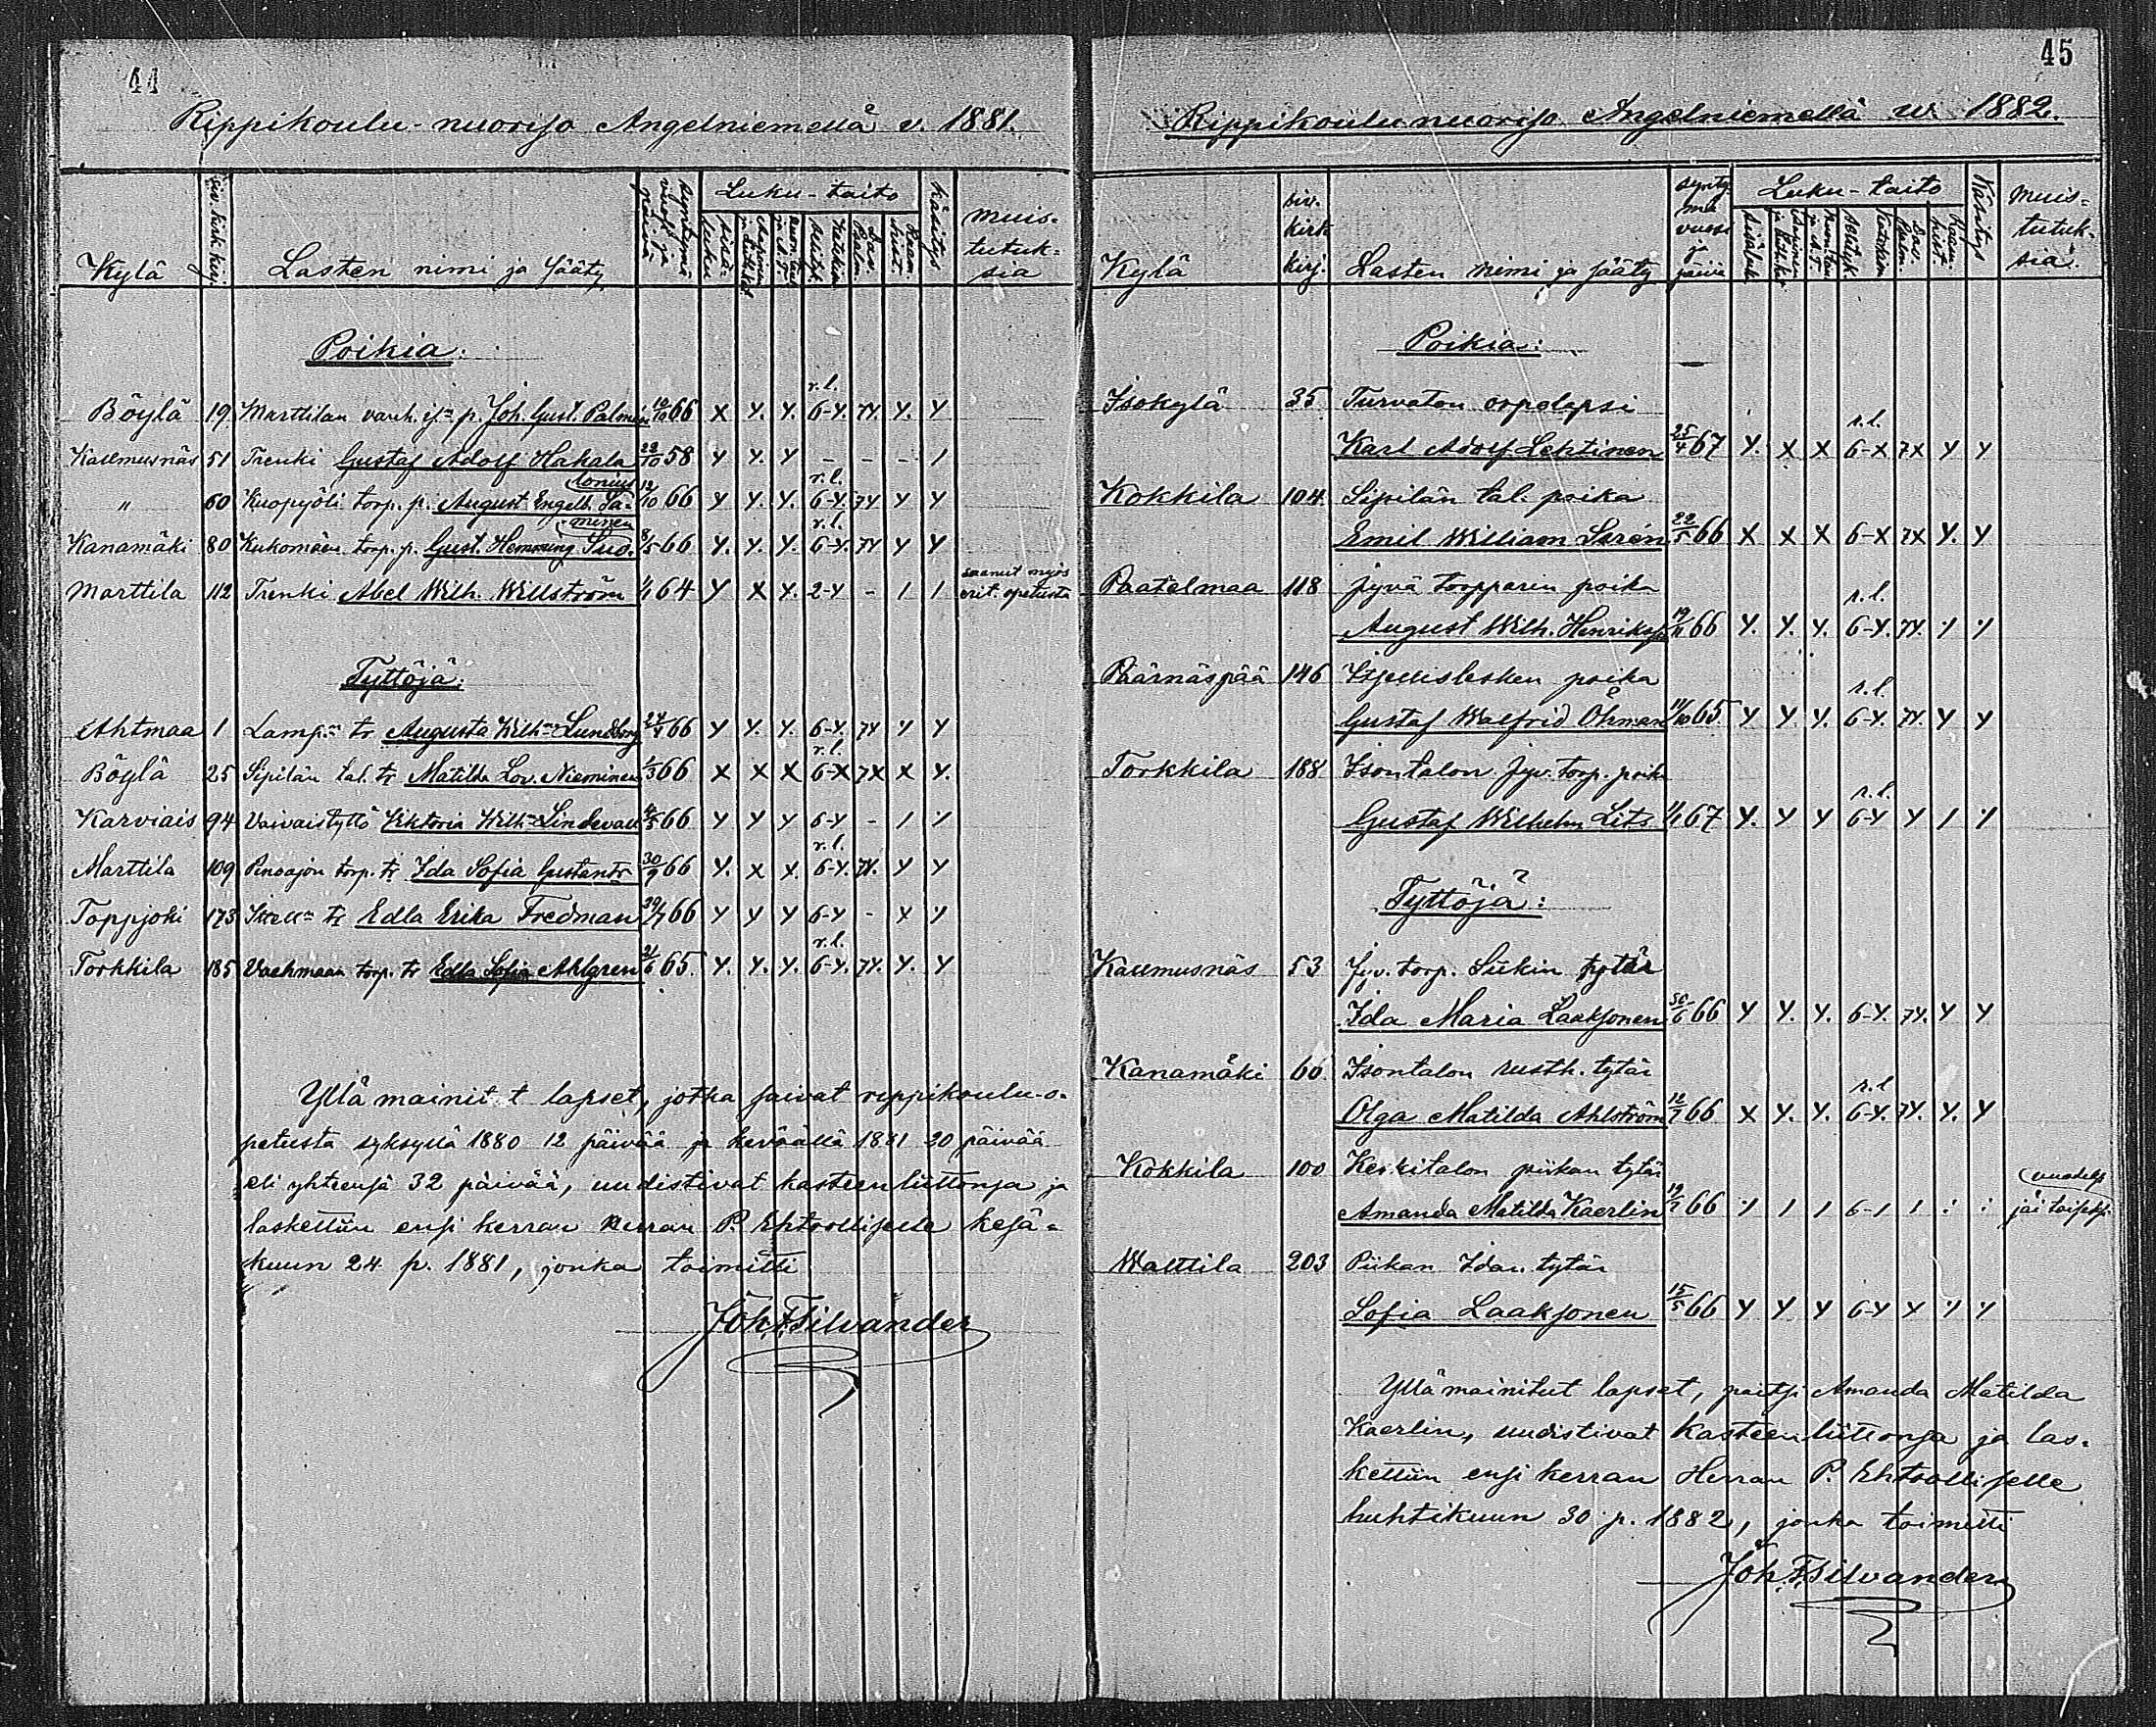 44
Rippikoulu-nuoriso Angelniemellä v. 1881.
Kylä
siv. kirk. kirj.
Lasten nimi ja sääty
syntymä vuosi ja päivä
Luku-taito
sisä-luku
Käsitys
Muis-
tutuk-
sia
Poikia:
r.l.
Böylä 19 Marttilan vanh. is. p. Joh. Gust. Palmén 10/10 66 x y. y. 6-y. 7y. y. y
Kallmusnäs 51 Trenki Gustaf Adolf Hakala 28/10 58 y y. y - - - /
lonius r.l.
" 60 Kuopyöli torp. p. August Engelb. Sa- 12/10 66 y y. y. 6-y. 7y y y
minen r.l.
Kanamäki 80 Kukomäen torp. p. Gust. Hemming Suo. 8/5 66 y. y. y. 6-y. 7y y y
saanut myös
Marttila 112 Trenki Abel Wilh. Willström 1/1 64 y x y. 2-y - / / erit. opetusta
Tyttöjä:
Ahtmaa 1 Lamp:n tr Augusta Wilh:na Lundberg 24/4 66 y y. y. 6-y. 7y y y
r.l.
Böylä 25 Sipilän tal. tr Matilda Lov. Nieminen 1/3 66 x x x 6-x 7x x y.
Karviais 94 Vaivaistyttö Viktoria Wilh:na Lindevall 4/5 66 y y y 6-y - / y
r.l.
Marttila 109 Pensajon torp. tr Ida Sofia Gustantr 30/9 66 y. x x. 6-y. 7y. y y
Toppjoki 173 Itsell:n tr Edla Erika Fredman 29/7 66 y y y 6-y - x y
r.l.
Torkkila 185 Vachmaan torp. tr Edla Sofia Ahlgren 21/6 65. y. y. y. 6-y. 7y. y. y
Yllä mainitut lapset, jotka saivat rippikoulu-o-
petusta syksyllä 1880 12 päivää ja keväällä 1881 20 päivää
eli yhteensä 32 päivää, uudistivat kasteenliittonsa ja
laskettiin ensi kerran Herran P. Ehtoolliselle kesä-
kuun 24 p. 1881, jonka toimitti
Joh. F. Silvander
45
Rippikoulunuoriso Angelniemellä w. 1882.
Kylä
siv.
kirk
kirj.
Lasten nimi ja sääty
synty
mä
vuosi
ja
päivä
Luku-taito
Sisäluku
Käsitys
Muis-
tutuk-
sia.
Poikia:
Isokylä 35 Turvaton orpolapsi
r.l.
Karl Adolf Lehtinen 25/4 67 y. x x 6-x 7x y y
Kokkila 104 Sipilän tal. poika
Emil William Sirén 22/5 66 x x x 6-x 7x y. y
Paatelmaa 118 Jyvä torpparin poika
r.l.
August Wilh. Henriksson 19/11 66 y. y. y. 6-y. 7y. y y
Päärnäspää 146 Itsellislesken poika
r.l.
Gustaf Walfrid Öhman 11/10 65 y y. y. 6-y. 7y. y y
Torkkila 188 Isontalon Jyv. torp. poika
r.l.
Gustaf Wilhelm Lits 1/1 67 y. y y 6-y y / y
Tyttöjä:
Kallmusnäs 53 Jyv. torp. Siikin tytär
Ida Maria Laaksonen 30/6 66 y y. y. 6-y. 7y. y y
Kanamäki 60 Isontalon rusth. tytär
r.l
Olga Matilda Ahlström 12/7 66 x y. y. 6-y. 7y. y. y
Kokkila 100 Keskitalon piikan tytär
vuodeksi
Amanda Matilda Kaerlin 19/7 66 y / / 6-/ / : : jäi toiseksi
Walttila 203 Piikan Idan tytär
Sofia Laaksonen 15/5 66 y y y 6-y x y y
Yllämainitut lapset, paitsi Amanda Matilda
Kaerlin, uudistivat kasteenliittonsa ja las-
kettiin ensi kerran Herran P. Ehtoolliselle
huhtikuun 30 p. 1882, jonka toimitti
Joh. F. Silvander